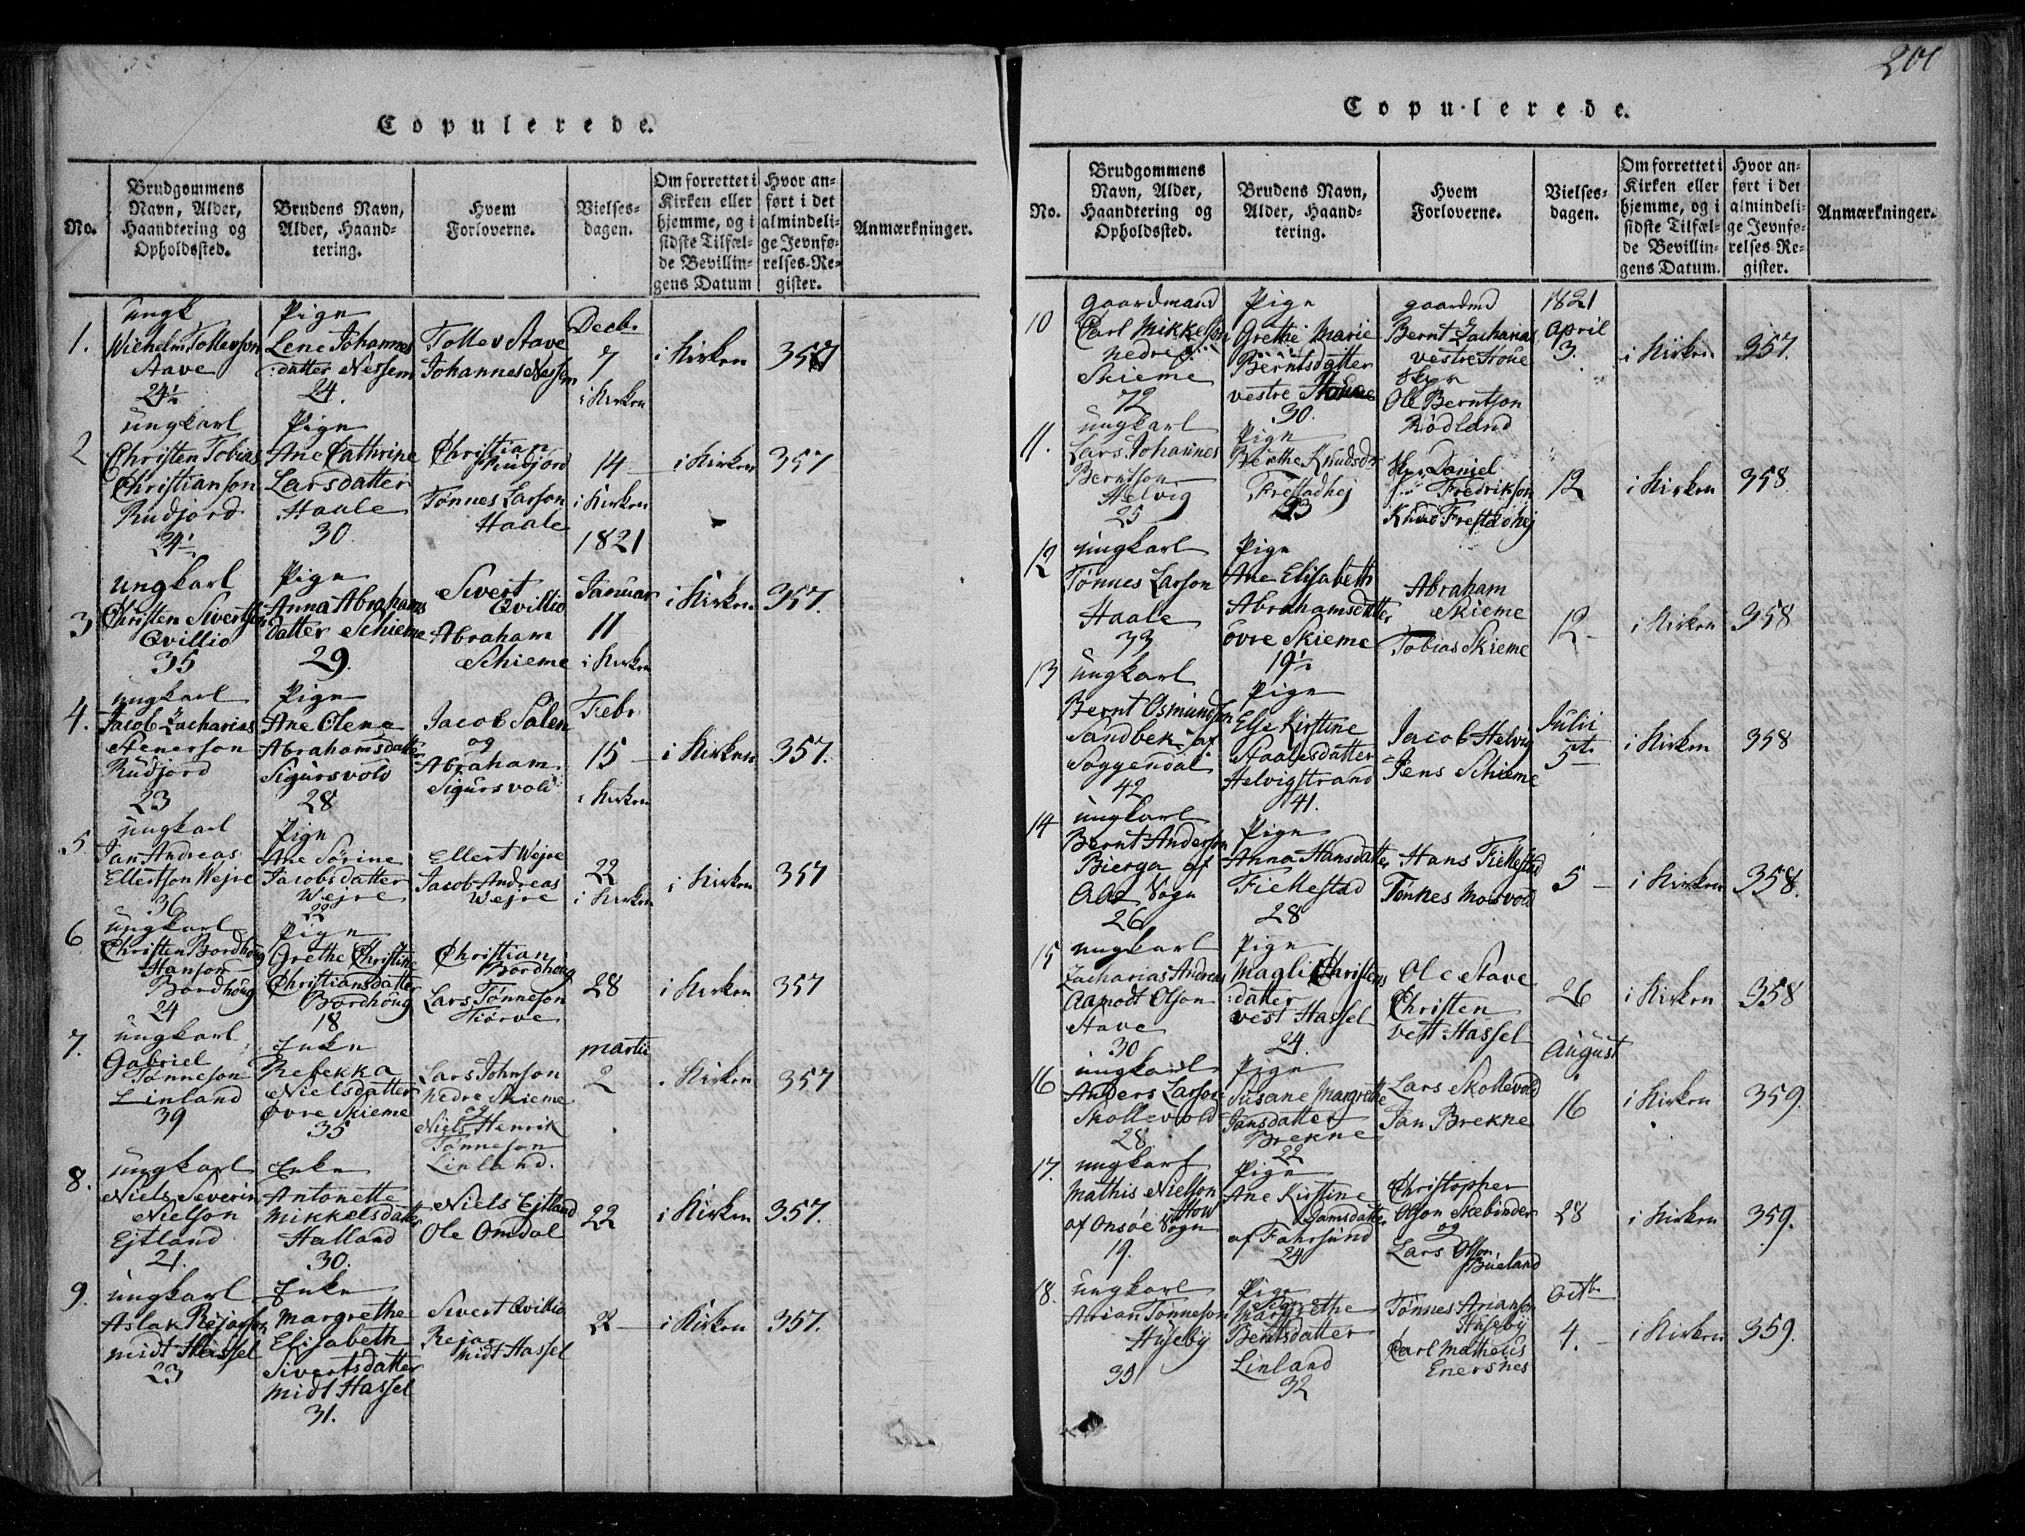 201
Copulerede.
No.
Brudgommens Navn, Alder, Haandtering og Opholdssted.
Brudens Navn, Alder, Haandtering.
Hvem Forloverne.
Vielsesdagen.
Om forrettet i Kirken eller hjemme, og i sidste Tilfælde Bevillingens Datum
Hvor anført i det almindelige Jevnførelses-Register.
Anmærkninger.
1.
ungk
Wichelm Tollevson
Stave
24½
Pige
Lene Johannes
:datter Nessem
24.
Tollev Stave
Johannes Nessem
Decb.
7
i Kirken
i Kirken
357
2
ungkarl
Christen Tobias
Christianson
Rudjord
24½
Pige
Ane Cathrine
Larsdatter
Haale
30.
Christian
Rudjord
Tønnes Larson
Haale
14
i Kirken
i Kirken
357
3
ungkarl
Christen Sivertson
Qvillio
35
Pige
Anna Abrahams
datter Schieme
29.
Sivert
Qvillio
Abraham
Schieme
1821
Januar
11
i Kirken
i Kirken
357.
4.
ungkarl
Jacob Zacharias
Stenerson
Rudjord
23
Pige
Ane Olene
Abrahamsdatter
Sigursvold
28
Jacob Salen
og
Abraham
Sigursvold
Febr
15
i Kirken
i Kirken
357.
5
ungkarl
Jan Andreas
Ellertson Wejre
36
Pige
Ane Sørine
Jacobsdatter
Wejre
22
Ellert Wejre
Jacob Andreas
Wejre
22
i Kirken
i Kirken
357
6
ungkarl
Christen Bordhoug
Hanson
Bordhoug
24
Pige
Grethe Christine
Christiansdatter
Bordhoug
18
Christian
Bordhoug
Lars Tønneson
Tiørve
28
i Kirken
357
7.
ungkarl
Gabriel
Tønneson
Linland
39
Enke
Rebekka
Nielsdatter
øvre Skieme
35
Lars Johnson
nedre Skieme
og
Niels Henrik
Tønneson
Linland.
martii
2
i Kirken
357
8.
ungkarl
Niels Severin
Nielson
Ejtland
21.
Enke
Antonette
Mikkelsdatter
Halland
30.
Niels Ejtland
Ole Omdal
22
i Kirken
357.
9.
ungkarl
Aslak Rejarson
midt Hassel
23
Enke
Margrethe
Elisabeth
Sivertsdatter
midt Hassel
31.
Sivert Qvillio
Rejar
midt Hassel
22
i Kirken
357.
Copulerede.
No.
Brudgommens Navn, Alder, Haandtering og Opholdssted.
Brudens Navn, Alder, Haandtering.
Hvem Forloverne.
Vielsesdagen.
Om forrettet i Kirken eller hjemme, og i sidste Tilfælde Bevillingens Datum.
Hvor anført i det almindelige Jevnførelses-Register.
Anmærkninger.
10
gaardmand
Carl Mikkelson
nedre
Skieme
72
Pige
Grethe Marie
Berntsdatter
vestre Houe
30.
gaardmd
Bernt Zacharias
vestre Houe
Ole Berntson
Rødland
1821
April
3.
i Kirken
357.
11.
ungkarl
Lars Johannes
Berntson
Helvig
25
Pige
Berthe Knudsdr
Frestadhej
23
Daniel
Fredrikson
Knud Frestadhej
12
i Kirken
358.
12
ungkarl
Tønnes Larson
Haale
33
Pige
Ane Elisabeth
Abrahamsdatter
øvre Skieme
19½
Abraham
Skieme
Tobias Skieme
12
i Kirken
358
13
ungkarl
Bernt Osmundson
Sandbek af
Soggendal
42
Pige
Else Kirstine
Staalesdatter
Helvigstrand
41.
Jacob Helvig
Jens Schieme
Julii
5te
i Kirken
358
14
ungkarl
Bernt Anderson
Bierga af
Aae Sogn
26
Pige
Anna Hansdatter
Fiellestad
28
Hans Fiellestad
Tønnes Mosvold
5
i Kirken
358.
15
ungkarl
Zacharias Andreas
Aamodt Olson
Stave
30
Pige
Magli Christens
:datter
vest Hassel
24.
Ole Stave
Christen
vest Hassel
26
i Kirken
358
16
ungkarl
Anders Larson
Skollevold
28.
Pige
Susane Margrethe
Jansdatter
Brekne
22
Lars Skollevold
Jan Brekne
August
16
i Kirken
359.
17.
ungkarl
Mathis Nielson
How
af Onsøe Sogn
19.
Pige
Ane Kirstine
Damsdatter
af Fahrsund
24
Christopher
Olson Skebinder
og
Lars Olson
Bueland
28
i Kirken
359.
18.
ungkarl
Arian Tønneson
Huseby
35
Pige
Margrethe
Berntsdatter
Linland
32
Tønnes Arianson
Huseby
Carl Matheus
Enersnes
Octbr
4.
i Kirken
359.